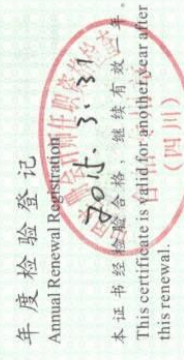 年度检验登记
Annual Renewal Registration
2015.3.31
本证书经检验合格，继续有效一年。
This certificate is valid for another year after
this renewal.
(四川)